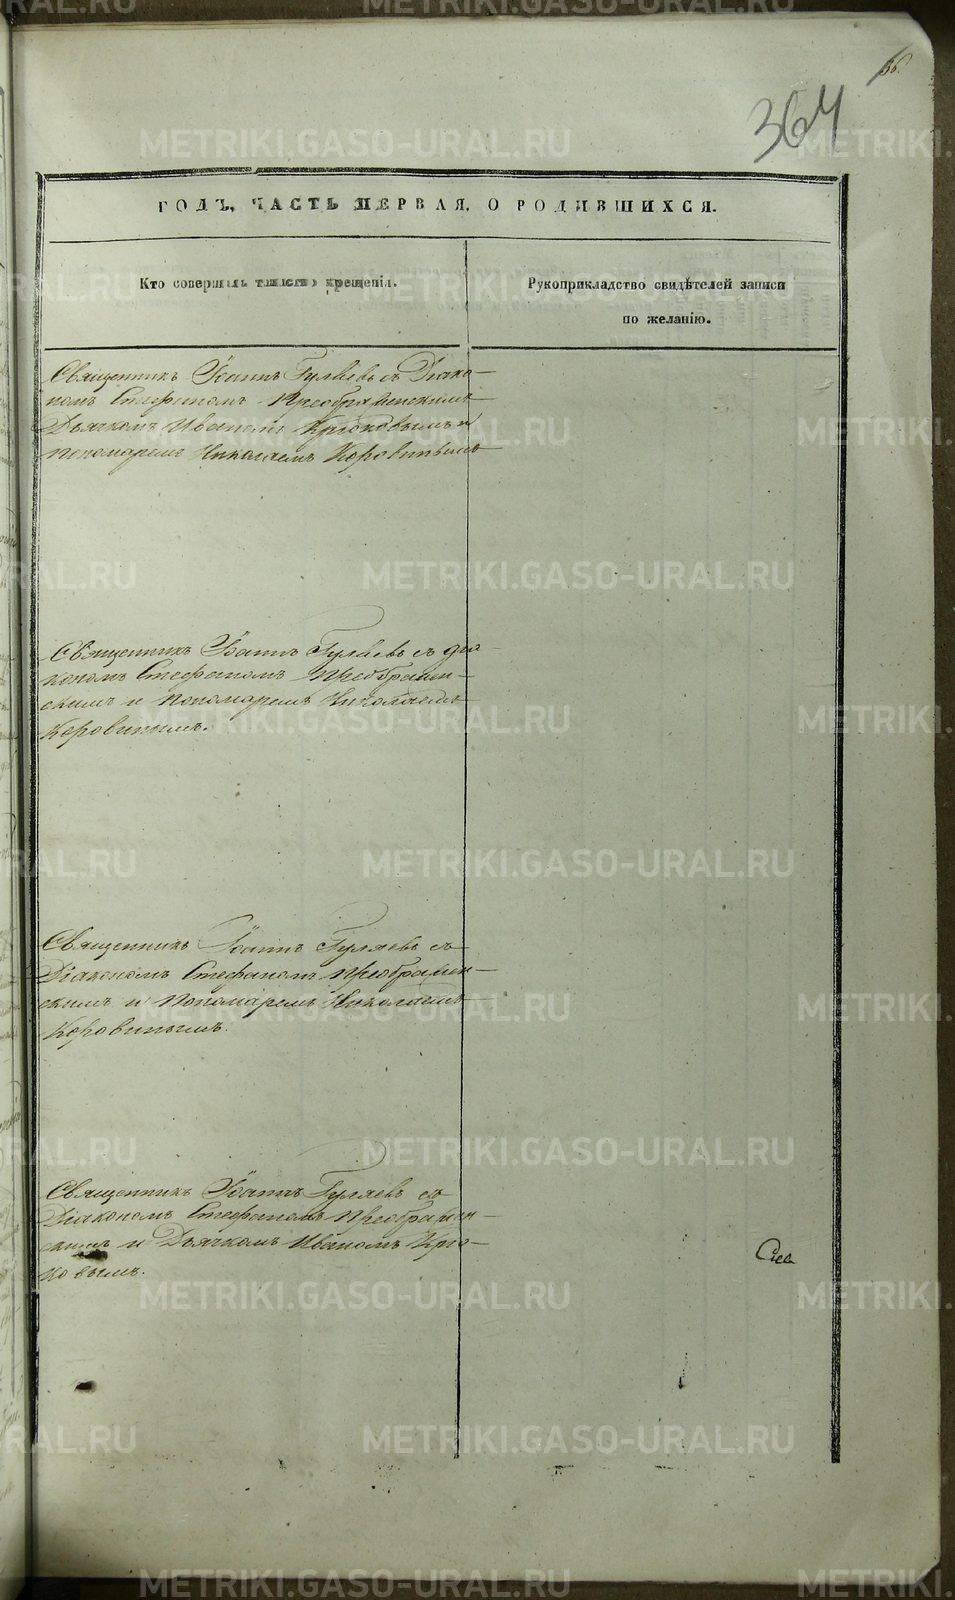 364
ГОДЪ, ЧАСТЬ ПЕРВАЯ, О РОДИВШИХСЯ.
Кто совершалъ таинство крещенія.
Рукоприкладство свидѣтелей записи
по желанію.
Священникъ Іоаннъ Гуляевъ съ Діако-
номъ Стефаномъ Преображенскимъ
Дьячкомъ Иваномъ Крюковымъ и
пономаремъ Николаемъ Коровинымъ
Священникъ Іоаннъ Гуляевъ съ діа-
кономъ Стефаномъ Преображен-
скимъ и Пономаремъ Николаемъ
Коровинымъ.
Священникъ Іоаннъ Гуляевъ съ
Діакономъ Стефаномъ Преображен-
скимъ и Пономаремъ Николаемъ
Коровинымъ.
Священникъ Іоаннъ Гуляевъ съ
Діакономъ Стефаномъ Преображен-
скимъ и Дьячкомъ Иваномъ Крю-
ковымъ.
METRIKI.GASO-URAL.RU